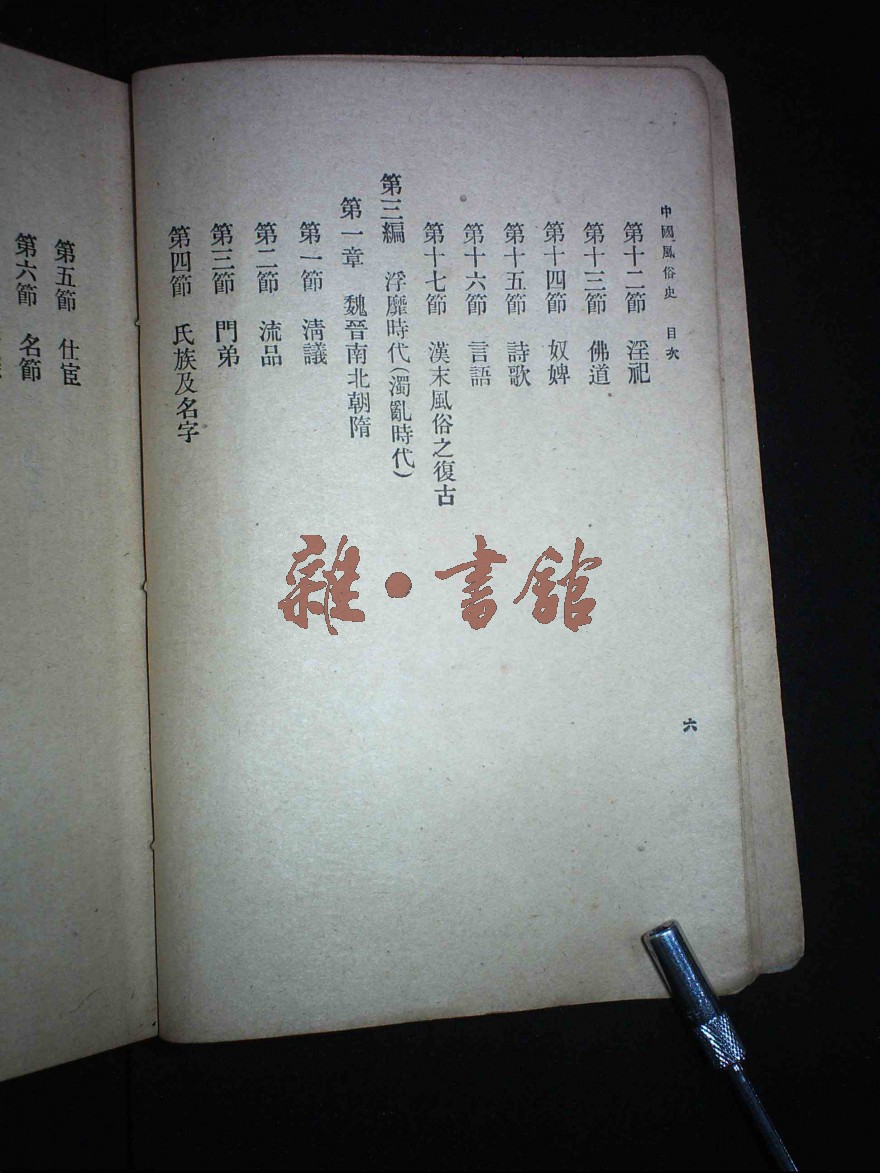 中國風俗史 目次
第十二節 淫祀
第十三節 佛道
第十四節 奴婢
第十五節 詩歌
第十六節 言語
第十七節 漢末風俗之復古
第三編 浮靡時代(濁亂時代)
第一章 魏晉南北朝隋
第一節 清議
第二節 流品
第三節 門弟
第四節 氏族及名字
六
第五節 仕宦
第六節 名節
雜·書館